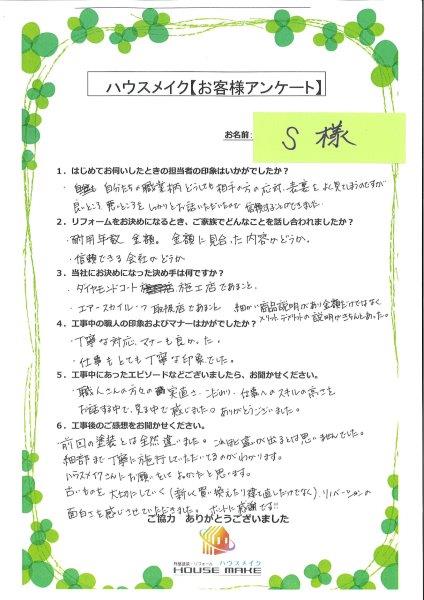 ハウスメイク【お客様アンケート】
お名前：
S 様
1．はじめてお伺いしたときの担当者の印象はいかがでしたか？
・自分たちの職業柄どうしても相手の方の応対、表裏をよく見てしまうのですが
良いところ、悪いところをしっかりとお話いただいたので信頼することができました。
2．リフォームをお決めになるとき、ご家族でどんなことを話し合われましたか？
・耐用年数、金額。金額に見合った内容かどうか。
・信頼できる会社かどうか
3．当社にお決めになった決め手は何ですか？
・ダイヤモンドコート施工店であること。
・エアースカイルーフ取扱店であること 細かい商品説明があり金額だけではなく
メリット、デメリットの説明がきちんとあった。
4．工事中の職人の印象およびマナーはいかがでしたか？
・丁寧な対応、マナーも良かった。
・仕事もとても丁寧な印象でした。
5．工事中にあったエピソードなどございましたら、お聞かせください。
・職人さんの方々の実直さ、こだわり、仕事へのスキルの高さを
お話する中で、見る中で感じました。ありがとうございました。
6．工事後のご感想をお聞かせください。
前回の塗装とは全然違いました。これほど違が出るとは思いませんでした。
細部まで丁寧に施行していただいてるのがわかります。
ハウスメイクさんにお願いをしてよかったと思います。
古いものを大切にしていく（新しく買い換えたり建て直しだけでなく）、リノベーションの
面白さを感じさせていただきました。ホントに感謝です!!
ご協力 ありがとうございました
外壁塗装・リフォーム ハウスメイク
HOUSE MAKE